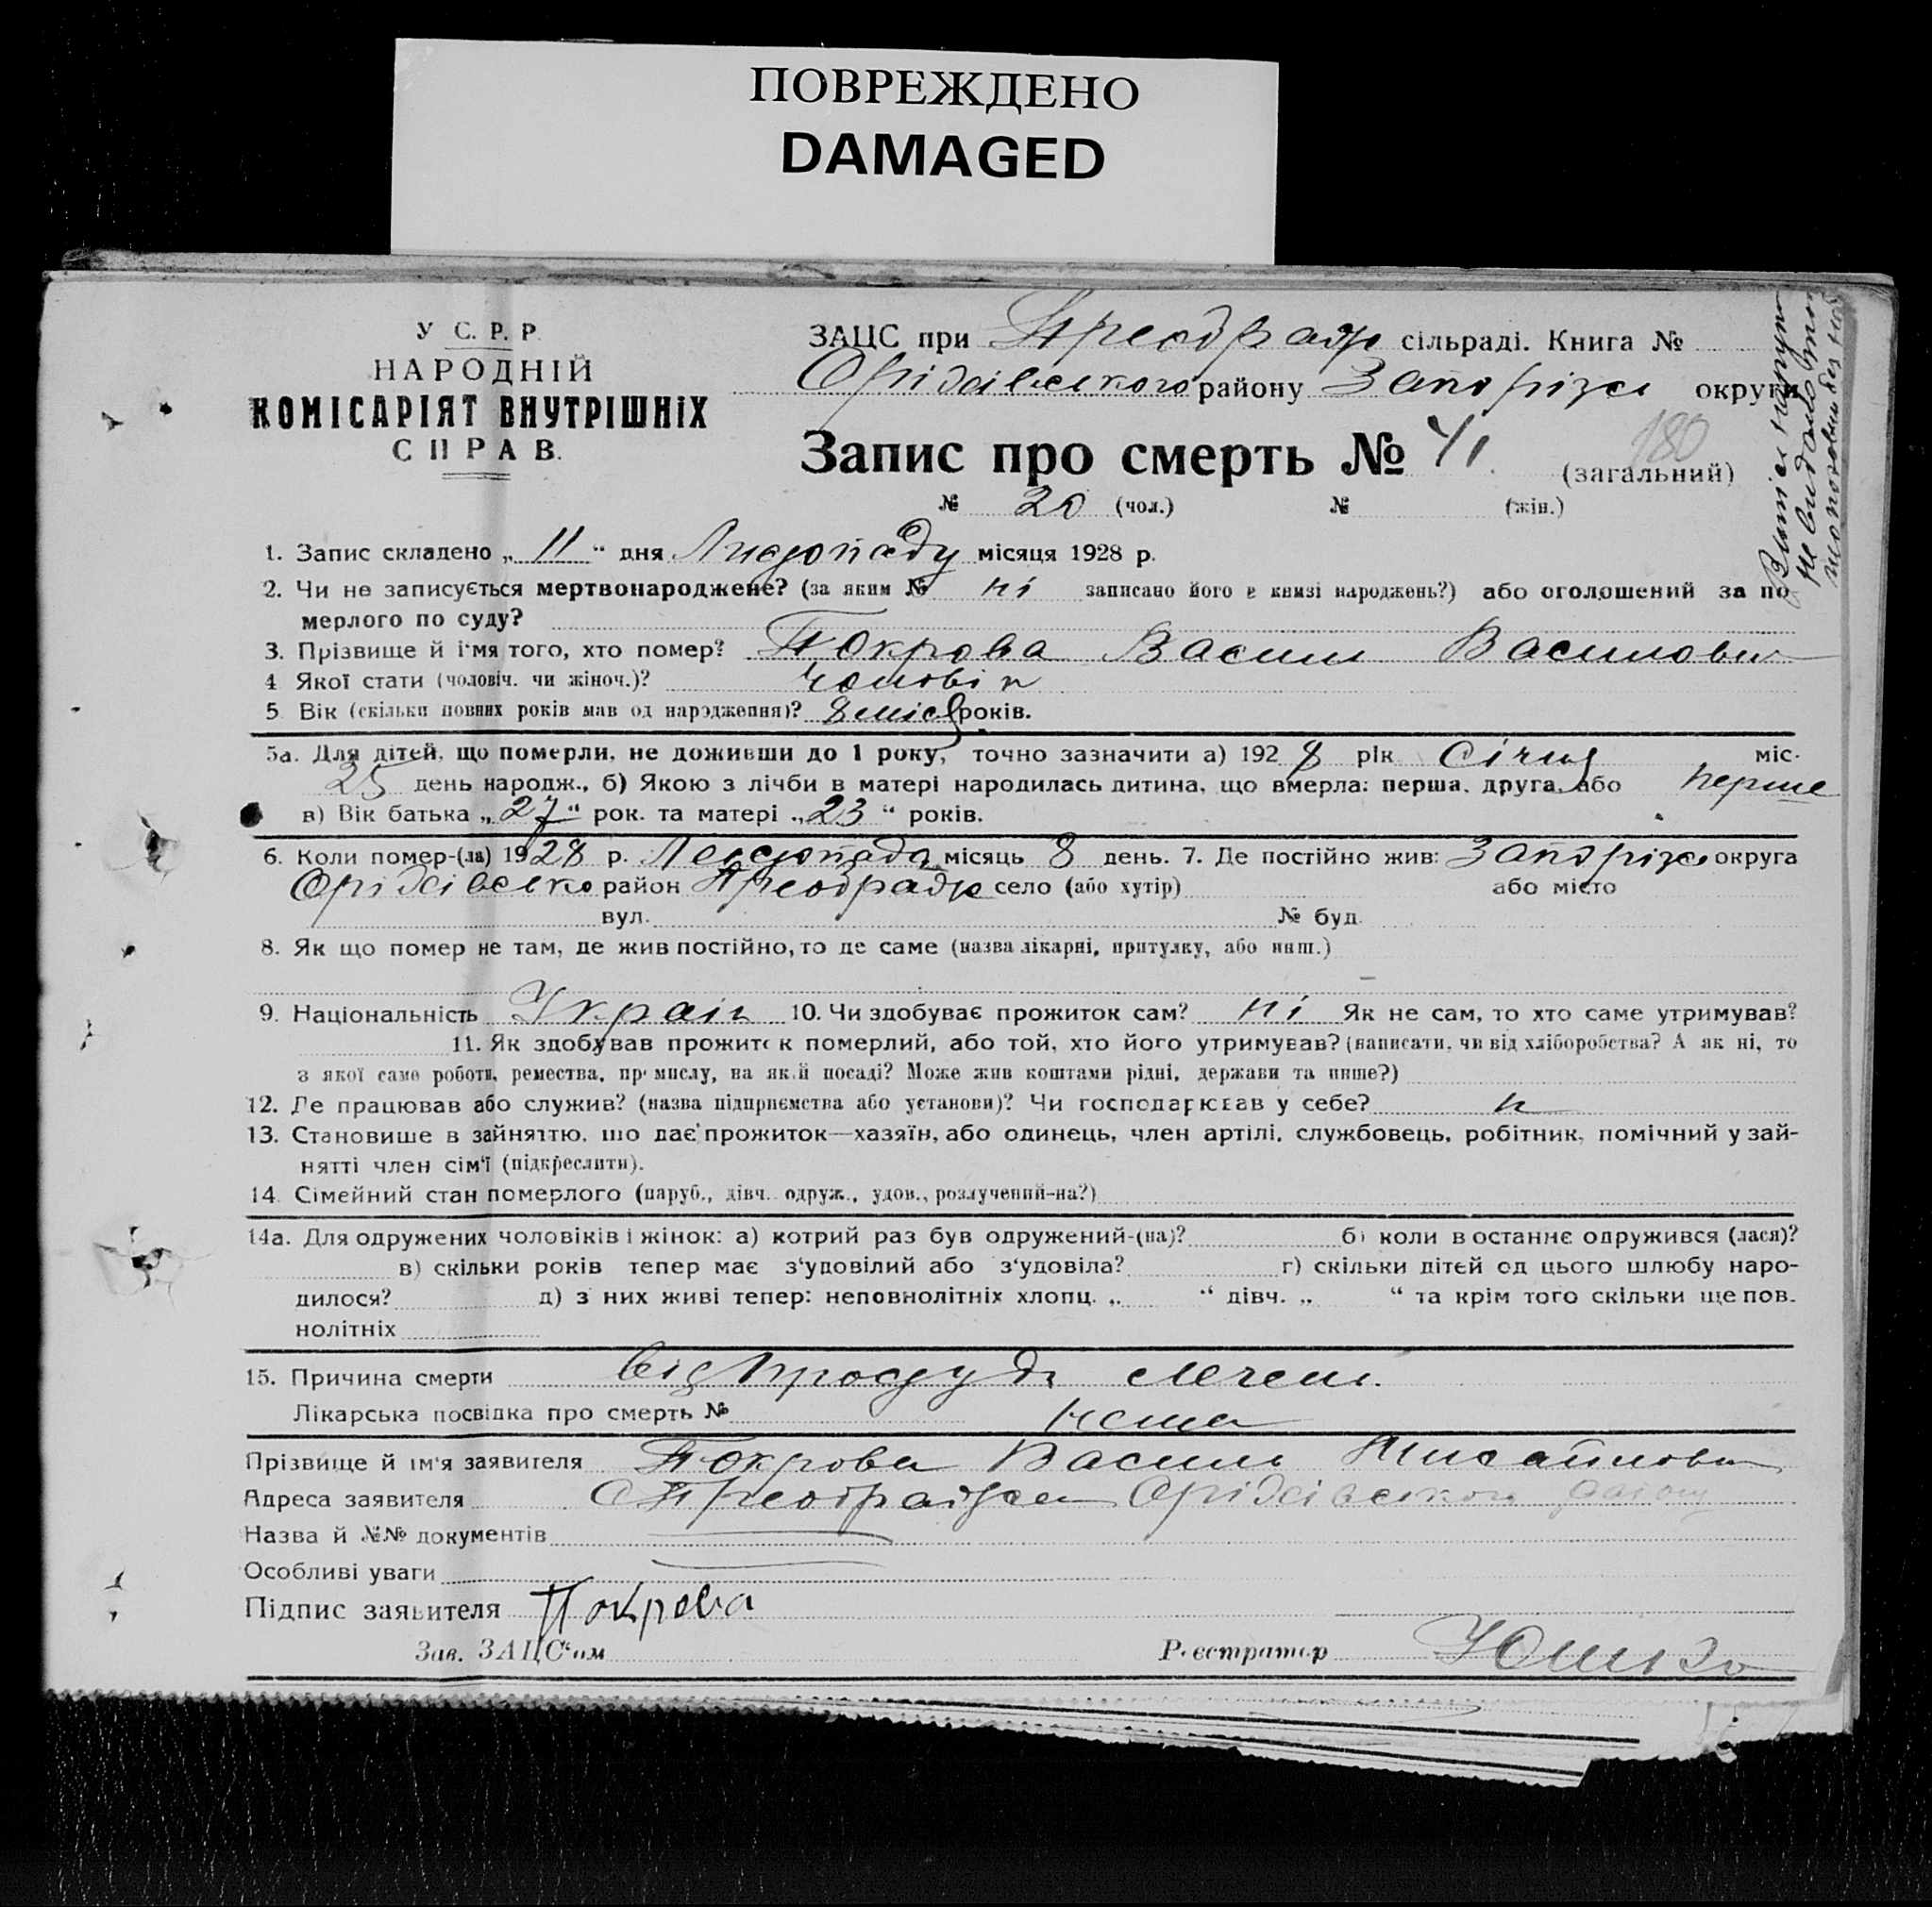 ПОВРЕЖДЕНО
DAMAGED
У С. Р. Р.
НАРОДНІЙ
КОМІСАРІЯТ ВНУТРІШНІХ
СПРАВ.
ЗАЦС при Преображ сільраді. Книга №
Оріхівського району Запоріжс округи
Запис про смерть № 41. (загальний)
180
№ 20 (чол.) № (жін.)
1. Запис складено „ 11 “ дня Листопаду місяця 1928 р.
2. Чи не записується мертвонароджене? (за яким № ні записано його в книзі народжень?) або оголошений за по
мерлого по суду?
3. Прізвище й ім'я того, хто помер? Покрова Василь Васильович
4 Якої стати (чоловіч. чи жіноч.)? Чоловік
5 Вік (скільки повних років мав од народження)? 8 міся років.
5а. Для дітей, що померли, не доживши до 1 року, точно зазначити а) 192 8 рік Січня міс.
25 день народж., б) Якою з лічби в матері народилась дитина, що вмерла: перша, друга або перше
в) Вік батька „ 27 “ рок. та матері „ 23 “ років.
6. Коли помер-(ла) 1928 р. Листопада місяць 8 день. 7. Де постійно жив: Запоріжс округа
Оріхівсько район Преображс село (або хутір) або місто
вул. № буд.
8. Як що помер не там, де жив постійно, то де саме (назва лікарні, притулку, або инш.)
–
9. Національність Україн 10. Чи здобуває прожиток сам? ні Як не сам, то хто саме утримував?
11. Як здобував прожиток померлий, або той, хто його утримував? (написати, чи від хліборобства? А як ні, то
з якої саме роботи, ремества, промислу, на якій посаді? Може жив коштами рідні, держави та инше?)
12. Де працював або служив? (назва підприємства або установи)? Чи господарював у себе? н
13. Становище в зайняттю, що дає прожиток—хазяїн, або одинець, член артілі, службовець, робітник, помічний у зай-
нятті член сім'ї (підкреслити).
14. Сімейний стан померлого (паруб., дівч. одруж., удов., розлучений-на?)
14а. Для одружених чоловіків і жінок: а) котрий раз був одружений-(на)? б) коли в останнє одружився (лася)?
в) скільки років тепер має з'удовілий або з'удовіла? г) скільки дітей од цього шлюбу наро-
дилося? д) з них живі тепер: неповнолітніх хлопц. „ “ дівч. „ “ та крім того скільки ще пов-
нолітніх
15. Причина смерти від простуди
Лікарська посвідка про смерть № нема
Прізвище й ім'я заявителя Покрова Василь
Адреса заявителя С Преображен Оріхівського району
Назва й №№ документів
Особливі уваги
Підпис заявителя Покрова
Зав. ЗАЦС'ом Реєстратор